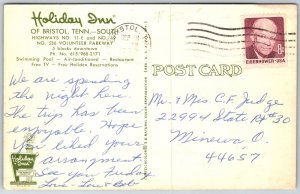 Holiday Inn
OF BRISTOL, TENN.—SOUTH
HIGHWAYS NO. 11-E and NO. 19
NO. 536 VOLUNTEER PARKWAY
5 blocks downtown
Ph. No. 615/968-2171
Swimming Pool — Air-conditioned — Restaurant
Free TV — Free Holiday Reservations
BRISTOL
POST CARD
EISENHOWER·USA
We are spending
the night here.
The trip has been
enjoyable. Hope
you liked your
arrangement.
See you Friday
Love - Lou & Bob
Mr. & Mrs C.F. Judge
22994 State Rt #30
Minerva O.
44657
Holiday Inn